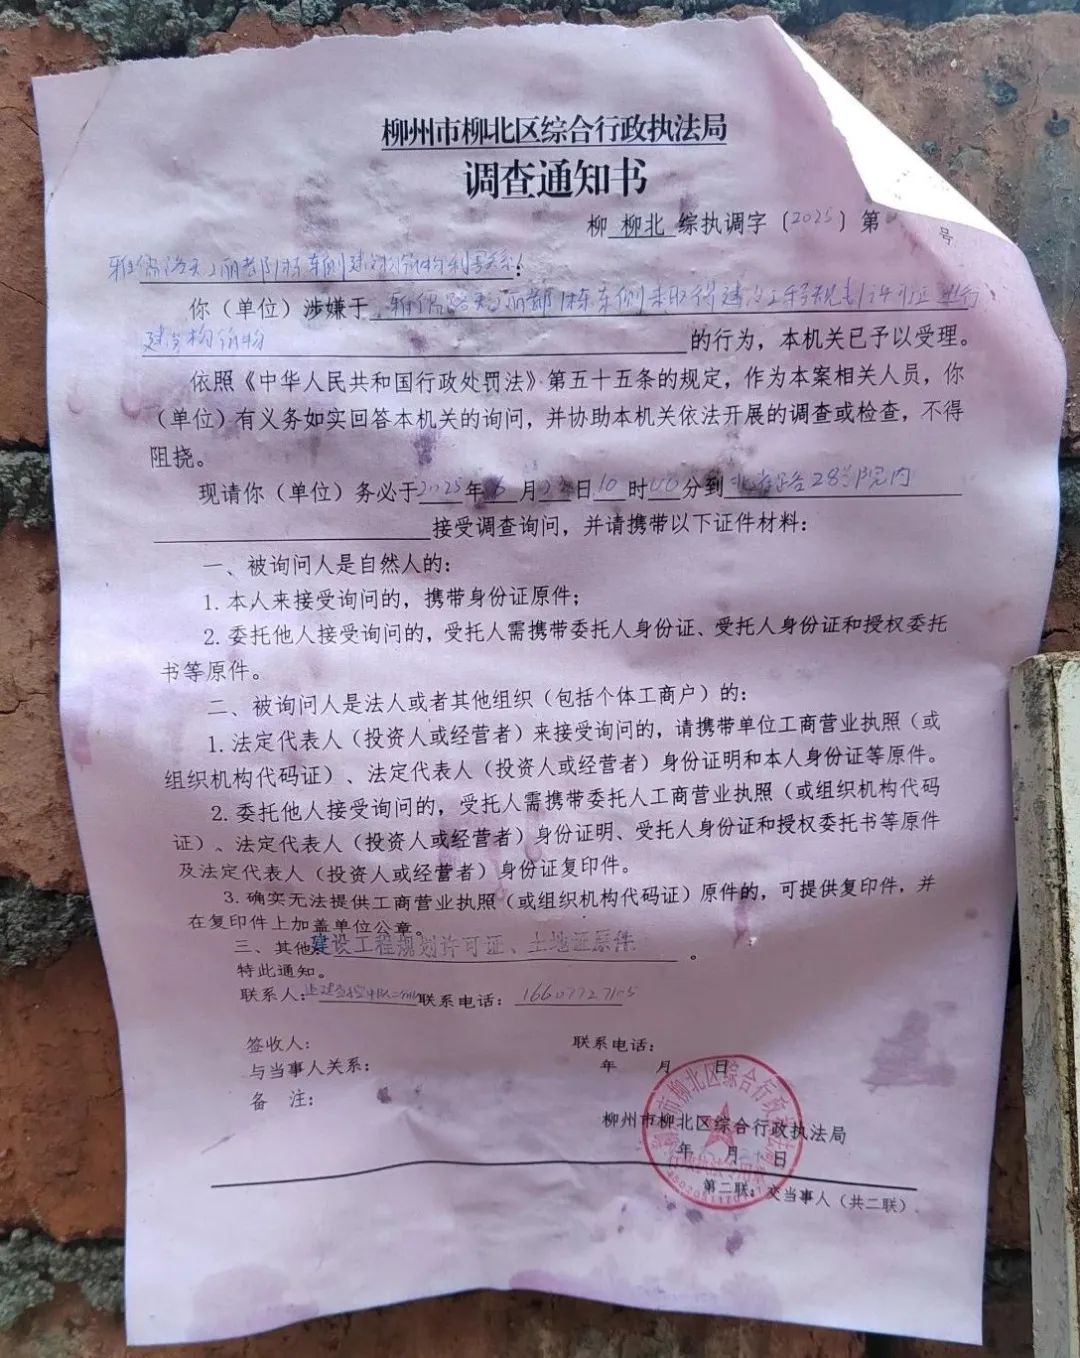 柳州市柳北区综合行政执法局
调查通知书
柳 柳北 综执调字〔2025〕第 号
雅儒路 丽都1栋东侧建 构筑物利害关系
你（单位）涉嫌于 雅儒路 丽都1栋东侧未取得建设工程规划许可证进行
建 构筑物 的行为，本机关已予以受理。
依照《中华人民共和国行政处罚法》第五十五条的规定，作为本案相关人员，你
（单位）有义务如实回答本机关的询问，并协助本机关依法开展的调查或检查，不得
阻挠。
现请你（单位）务必于2025年6月 日10时00分到 28 院内
接受调查询问，并请携带以下证件材料：
一、被询问人是自然人的：
1.本人来接受询问的，携带身份证原件；
2.委托他人接受询问的，受托人需携带委托人身份证、受托人身份证和授权委托
书等原件。
二、被询问人是法人或者其他组织（包括个体工商户）的：
1.法定代表人（投资人或经营者）来接受询问的，请携带单位工商营业执照（或
组织机构代码证）、法定代表人（投资人或经营者）身份证明和本人身份证等原件。
2.委托他人接受询问的，受托人需携带委托人工商营业执照（或组织机构代码
证）、法定代表人（投资人或经营者）身份证明、受托人身份证和授权委托书等原件
及法定代表人（投资人或经营者）身份证复印件。
3.确实无法提供工商营业执照（或组织机构代码证）原件的，可提供复印件，并
在复印件上加盖单位公章。
三、其他建设工程规划许可证、土地证原件。
特此通知。
联系人： 联系电话：16607727105
签收人： 联系电话：
与当事人关系： 年 月 日
备 注：
柳州市柳北区综合行政执法局
年 月 日
第二联：交当事人（共二联）